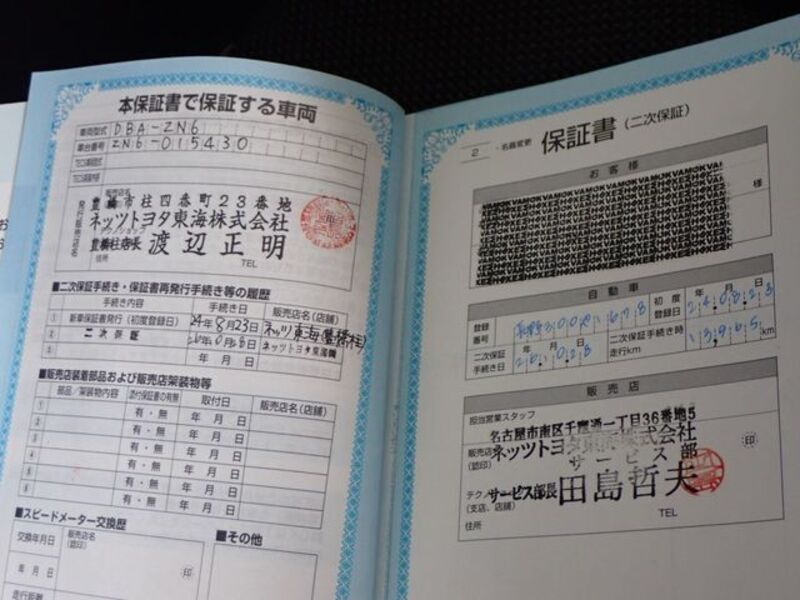 本保証書で保証する車両
車両型式 DBA-ZN6
車台番号 ZN6-015430
発行販売店名
販売店名
豊橋市柱四番町23番地
ネッツトヨタ東海株式会社
豊橋柱店長 渡辺正明
住所
TEL
■二次保証手続き・保証書再発行手続き等の履歴
手続き内容 手続き日 販売店名(店舗)
① 新車保証書発行(初度登録日) 24年8月23日 ネッツ東海(豊橋柱)
② 二次保証 ネッツトヨタ東海
③ 年 月 日
■販売店装着部品および販売店架装物等
部品/架装物内容 添付保証書の有無 取付日 販売店名(店舗)
① 有・無 年 月 日
② 有・無 年 月 日
③ 有・無 年 月 日
④ 有・無 年 月 日
⑤ 有・無 年 月 日
⑥ 有・無 年 月 日
■スピードメーター交換歴
交換年月日 販売店名(認印)
年 月 日 印
走行距離
■その他
2 ・名義変更 保証書(二次保証)
お客様
様
自動車
登録番号
初度登録日 年 月 日 24.08.23
二次保証手続き日 26.10.28
二次保証手続き時走行km 13965km
販売店
担当営業スタッフ
名古屋市南区千竈通一丁目36番地5
販売店名(認印) ネッツトヨタ東海株式会社 印
サービス部
サービス部長 田島哲夫
(支店、店舗)
住所
TEL